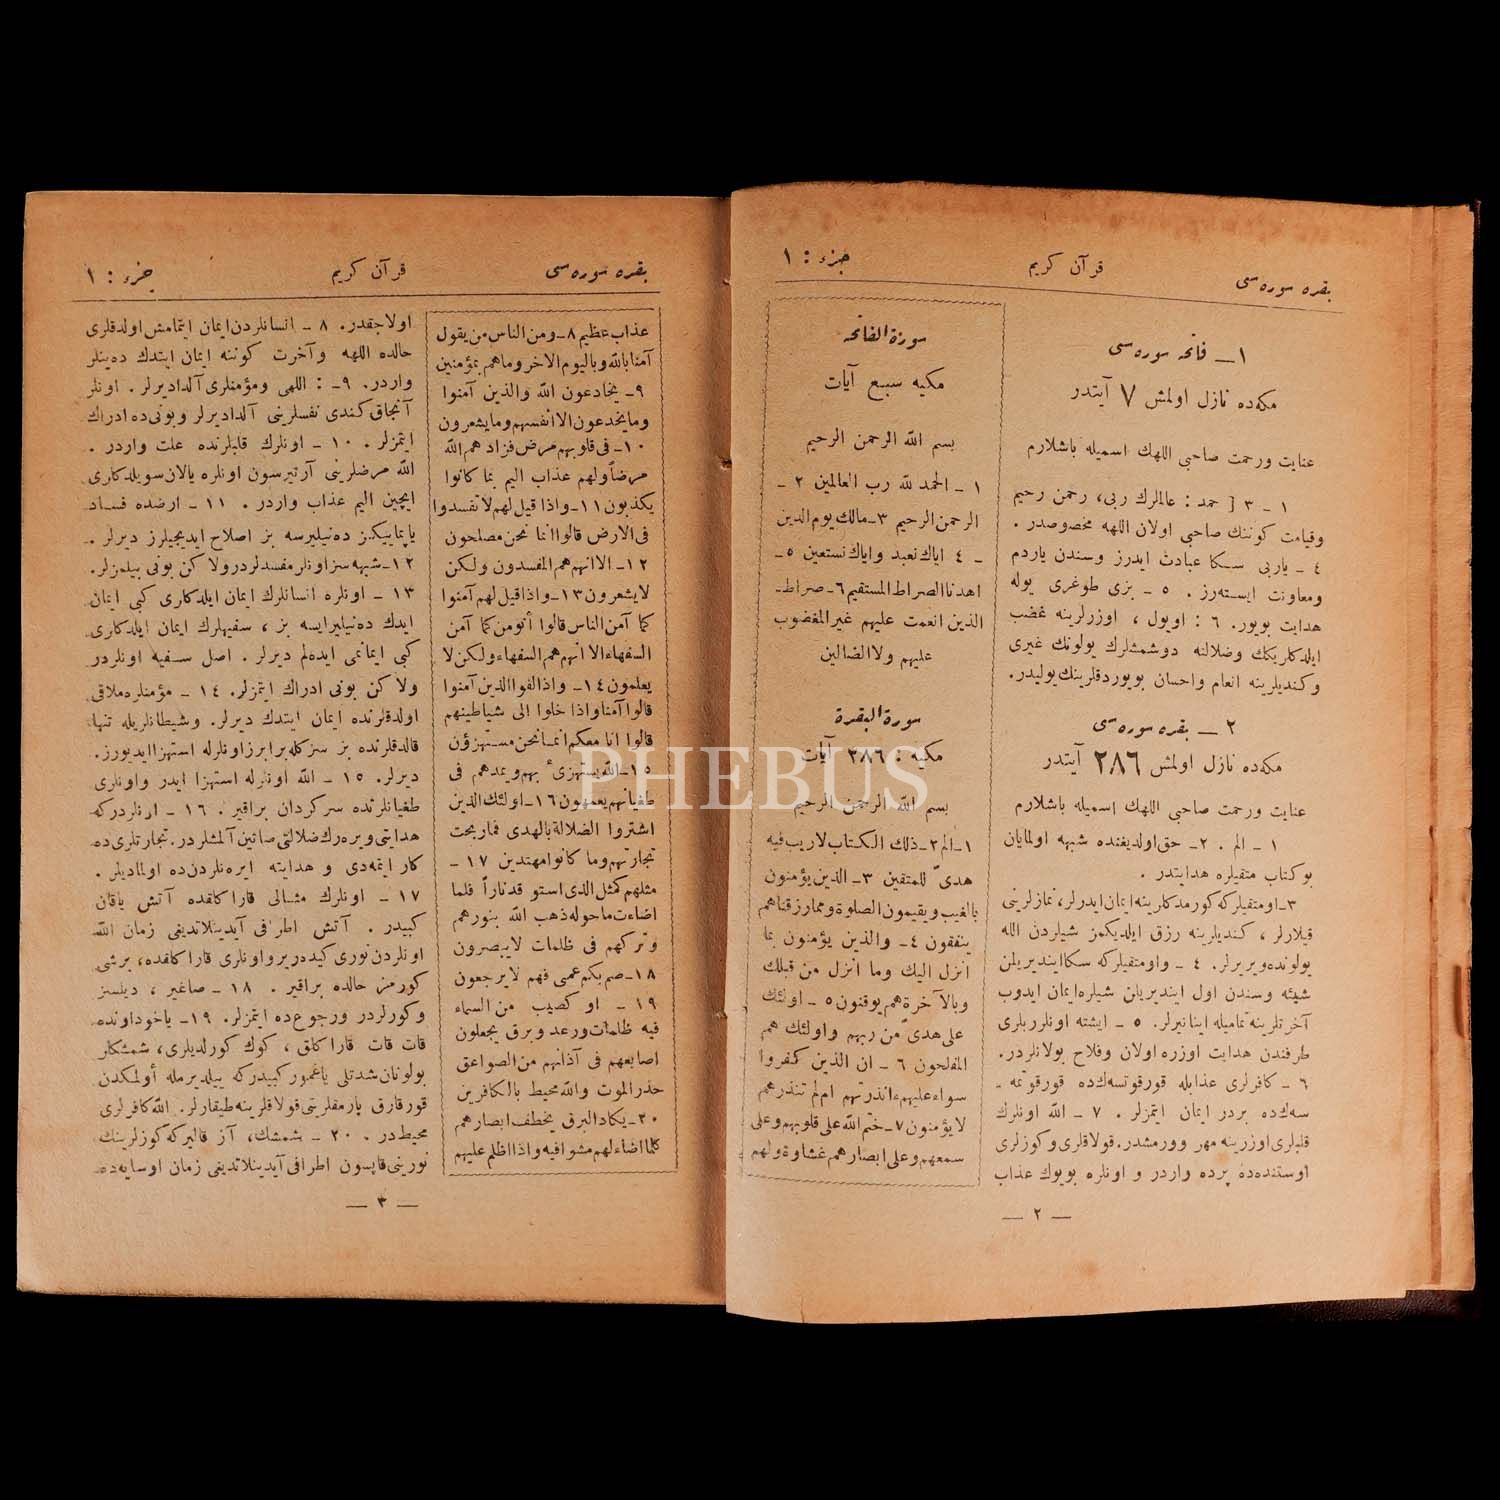 بقره سوره سی
قرآن كریم
جزء : ١
١ ــ فاتحه سوره سی
مكه ده نازل اولمش ٧ آیتدر
عنایت ورحمت صاحبی اللهك اسمیله باشلارم
١ ـ ٣ [ حمد : عالمرك ربی، رحمن رحیم
وقیامت كوننك صاحبی اولان اللهه مخصوصدر .
٤ ـ یاربی سكا عبادت ایدرز وسندن یاردم
ومعاونت ایسته رز . ٥ ـ بزی طوغری یوله
هدایت بویور. ٦ : اویول ، اوزرلرینه غضب
ایلدكلریكك وضلالته دوشمشلرك یولونك غیری
وكندیلرینه انعام واحسان بویوردقلرینك یولیدر.
٢ ــ بقره سوره سی
مكه ده نازل اولمش ٢٨٦ آیتدر
عنایت ورحمت صاحبی اللهك اسمیله باشلارم
١ ـ الم . ٢ـ حق اولدیغنده شبهه اولمایان
بو كتاب متقیلره هدایتدر .
٣ـ اومتقیلركه كورمدكلرینه ایمان ایدرلر، نمازلرینی
قیلارلر ، كندیلرینه رزق ایلدیكمز شیلردن الله
یولونده ویریرلر. ٤ ـ واومتقیلركه سكا ایندیریلن
شیئه وسندن اول ایندیریلن شیلره ایمان ایدوب
آخرتلرینه تمامیله اینانیرلر. ٥ ـ ایشته اونلر ربلری
طرفندن هدایت اوزره اولان وفلاح بولانلردر.
٦ ـ كافرلری عذابله قورقوتسه ك ده قورقوتمه ـ
سه ك ده بردر ایمان ایتمزلر . ٧ ـ الله اونلرك
قلبلری اوزرینه مهر وورمشدر. قولاقلری وكوزلری
اوستنده ده پرده واردر و اونلره بویوك عذاب
سورة الفاتحه
مكیه سبع آیات
بسم الله الرحمن الرحیم
١ ـ الحمد لله رب العالمین ٢ ـ
الرحمن الرحیم ٣ـ مالك یوم الدین
ـ ٤ ایاك نعبد وایاك نستعین ٥ـ
اهدنا الصراط المستقیم ٦ـ صراط ـ
الذین انعمت علیهم غیر المغضوب
علیهم ولا الضالین
سورة البقرة
مكیه : ٢٨٦ آیات
بسم الله الرحمن الرحیم
١ـ الم ٢ـ ذلك الكتاب لاریب فیه
هدیً للمتقین ٣ـ الذین یؤمنون
بالغیب ویقیمون الصلوة ومما رزقناهم
ینفقون ٤ـ والذین یؤمنون بما
انزل الیك وما انزل من قبلك
وبالآخرة هم یوقنون ٥ ـ اولئك
علی هدیً من ربهم واولئك هم
المفلحون ٦ ـ ان الذین كفروا
سواء علیهم ءانذرتهم ام لم تنذرهم
لا یؤمنون ٧ـ ختم الله علی قلوبهم وعلی
سمعهم وعلی ابصارهم غشاوة ولهم
— ٢ —
بقره سوره سی
قرآن كریم
جزء : ١
عذاب عظیم ٨ـ ومن الناس من یقول
آمنا بالله وبالیوم الآخر وماهم بمؤمنین
٩ـ یخادعون الله والذین آمنوا
ومایخدعون الا انفسهم ومایشعرون
١٠ـ فی قلوبهم مرض فزادهم الله
مرضاً ولهم عذاب الیم بما كانوا
یكذبون ١١ـ واذا قیل لهم لاتفسدوا
فی الارض قالوا انما نحن مصلحون
١٢ـ الا انهم هم المفسدون ولكن
لایشعرون ١٣ـ واذا قیل لهم آمنوا
كما آمن الناس قالوا أنؤمن كما آمن
السفهاء الا انهم هم السفهاء ولكن لا
یعلمون ١٤ـ واذا لقوا الذین آمنوا
قالوا آمنا واذا خلوا الی شیاطینهم
قالوا انا معكم انما نحن مستهزؤن
١٥ـ الله یستهزئ بهم ویمدهم فی
طغیانهم یعمهون ١٦ـ اولئك الذین
اشتروا الضلالة بالهدی فما ربحت
تجارتهم وما كانوا مهتدین ١٧ ـ
مثلهم كمثل الذی استوقد ناراً فلما
اضاءت ماحوله ذهب الله بنورهم
وتركهم فی ظلمات لایبصرون
١٨ـ صم بكم عمی فهم لایرجعون
١٩ ـ او كصیب من السماء
فیه ظلمات ورعد وبرق یجعلون
اصابعهم فی آذانهم من الصواعق
حذر الموت والله محیط بالكافرین
٢٠ـ یكاد البرق یخطف ابصارهم
كلما اضاء لهم مشوا فیه واذا اظلم علیهم
اولاجقدر. ٨ ـ انسانلردن ایمان ایتمامش اولدقلری
حالده اللهه وآخرت كوننه ایمان ایتدك دەینلر
واردر. ٩ـ : اللهی ومؤمنلری آلدادیرلر. اونلر
آنجاق كندی نفسلرینی آلدادیرلر وبونی ده ادراك
ایتمزلر. ١٠ ـ اونلرك قلبلرنده علت واردر .
الله مرضلرینی آرتیرسون اونلره یالان سویلدكلری
ایچین الیم عذاب واردر . ١١ ـ ارضده فساد
یاپمایكز دەنیلیرسه بز اصلاح ایدیجیلرز دیرلر .
١٢ـ شبهه سز اونلر مفسدلردر ولاكن بونی بیلمزلر.
١٣ ـ اونلره انسانلرك ایمان ایلدكلری كبی ایمان
ایدك دەنیلیرایسه بز ، سفیهلرك ایمان ایلدكلری
كبی ایمانمی ایدەلم دیرلر. اصل سفیه اونلردر
ولاكن بونی ادراك ایتمزلر. ١٤ ـ مؤمنلره ملاقی
اولدقلرنده ایمان ایتدك دیرلر. وشیطانلریله تنها
قالدقلرنده بز سزكله برابرز اونلرله استهزا ایدییورز.
دیرلر. ١٥ ـ الله اونلرله استهزا ایدر واونلری
طغیانلرنده سركردان براقیر. ١٦ ـ اونلردركه
هدایتی ویرەرك ضلالتی صاتین آلمشلردر. تجارتلری ده
كار ایتمەدی و هدایته ایرەنلردن ده اولمادیلر.
١٧ ـ اونلرك مثالی قاراكلقده آتش یاقان
كبیدر . آتش اطرافی آیدینلاتدیغی زمان الله
اونلردن نوری كیدەریر واونلری قاراكلقده، برشی
كورمز حالده براقیر . ١٨ ـ صاغیر ، دیلسز
وكورلردر ورجوع ده ایتمزلر. ١٩ـ یاخود اونده
قات قات قاراكلق ، كوك كورلدیلری، شمشكلر
بولونان شدتلی یاغمور كبیدركه ییلدیرمله أولمكدن
قورقارق پارمقلرینی قولاقلرینه طیقارلر. الله كافرلری
محیطدر . ٢٠ ـ شمشك، آز قالیركه كوزلرینك
نورینی قاپسون اطرافی آیدینلاتدیغی زمان اوسایەده
— ٣ —
PHEBUS